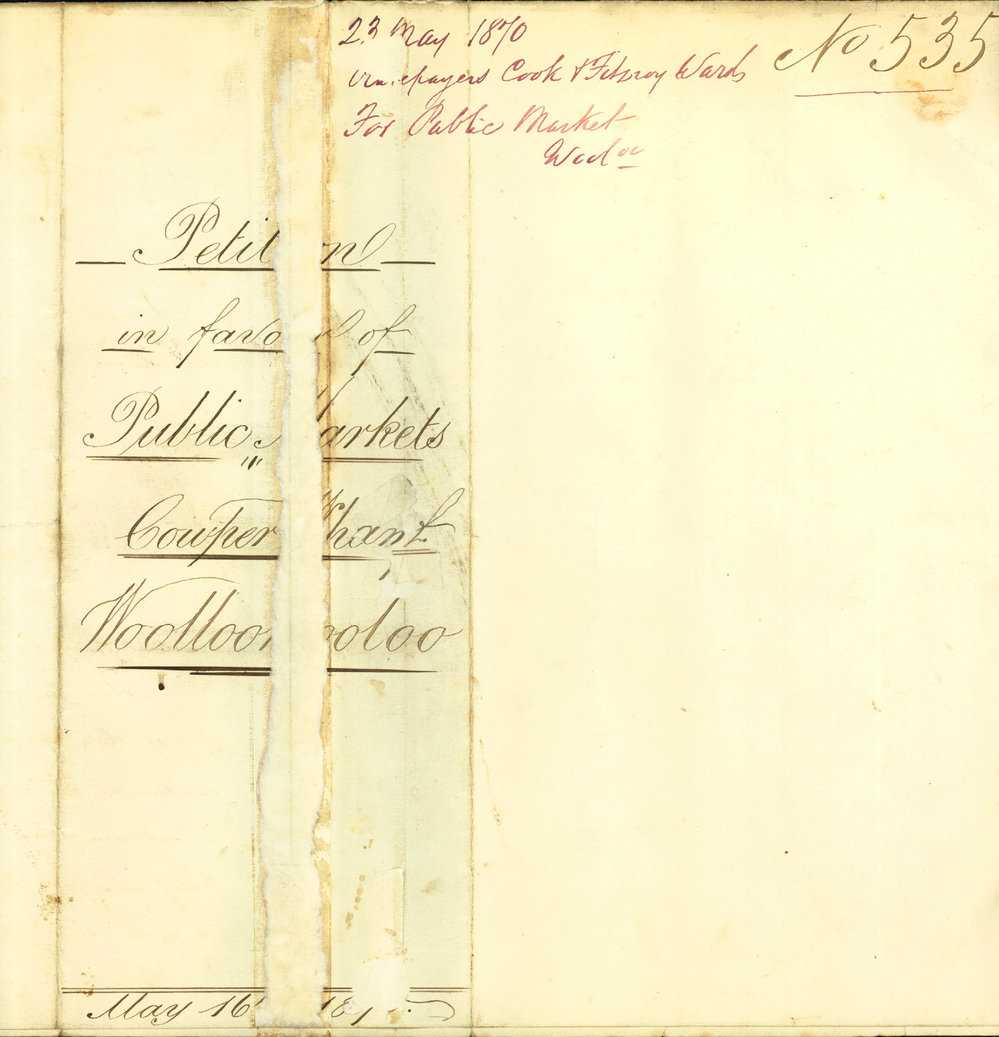 23 May 1870
No 535
Cook & Fitzroy Wards
For Public Market
Wooloo
Petit on
in favo of
Public arkets
Cowper harf
Woolloo ooloo
May 16 18